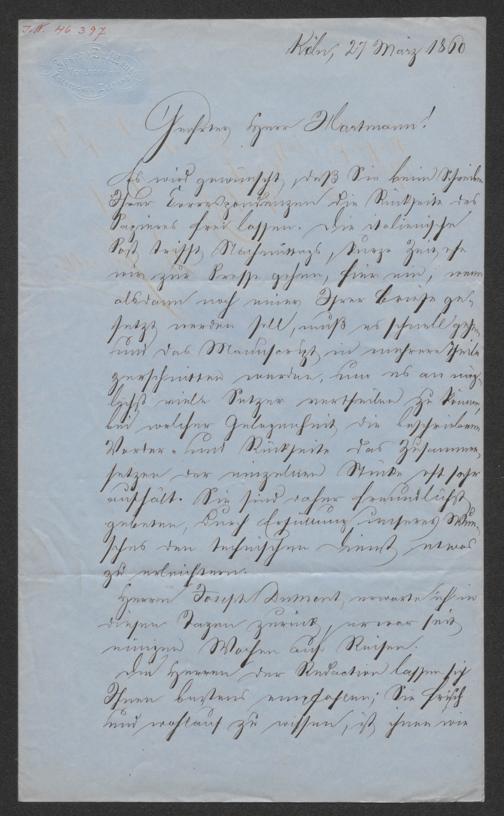 I.N. 46.397
Köln, 27 März 1860
Geehrter Herr Hartmann!
Es wird gewünscht, daß Sie beim Schreiben
Ihrer Correspondenzen die Rückseite des
Papieres frei lassen. Die italienische
Post trifft Nachmittags, kurze Zeit, ehe
wir zur Presse gehen, hier ein; wenn
alsdann noch einer Ihrer Briefe ge-
setzt werden soll, muß es schnell gehen
und das Manuscript in mehrere Theile
zerschnitten werden, um es an mög-
lichst viele Setzer vertheilen zu können,
bei welcher Gelegenheit die beschriebene
Vorder- und Rückseite das Zusammen-
setzen der einzelnen Stücke oft sehr
aufhält. Sie sind daher freundlichst
gebeten, durch Erfüllung unseres Wun-
sches den technischen Dienst etwas
zu erleichtern.
Herrn Joseph DuMont erwarte ich in
diesen Tagen zurück, er war seit
einigen Wochen auf Reisen.
Die Herren der Redaction lassen sich
Ihnen bestens empfehlen; Sie frisch
und wohlauf zu wissen, ist ihnen wie